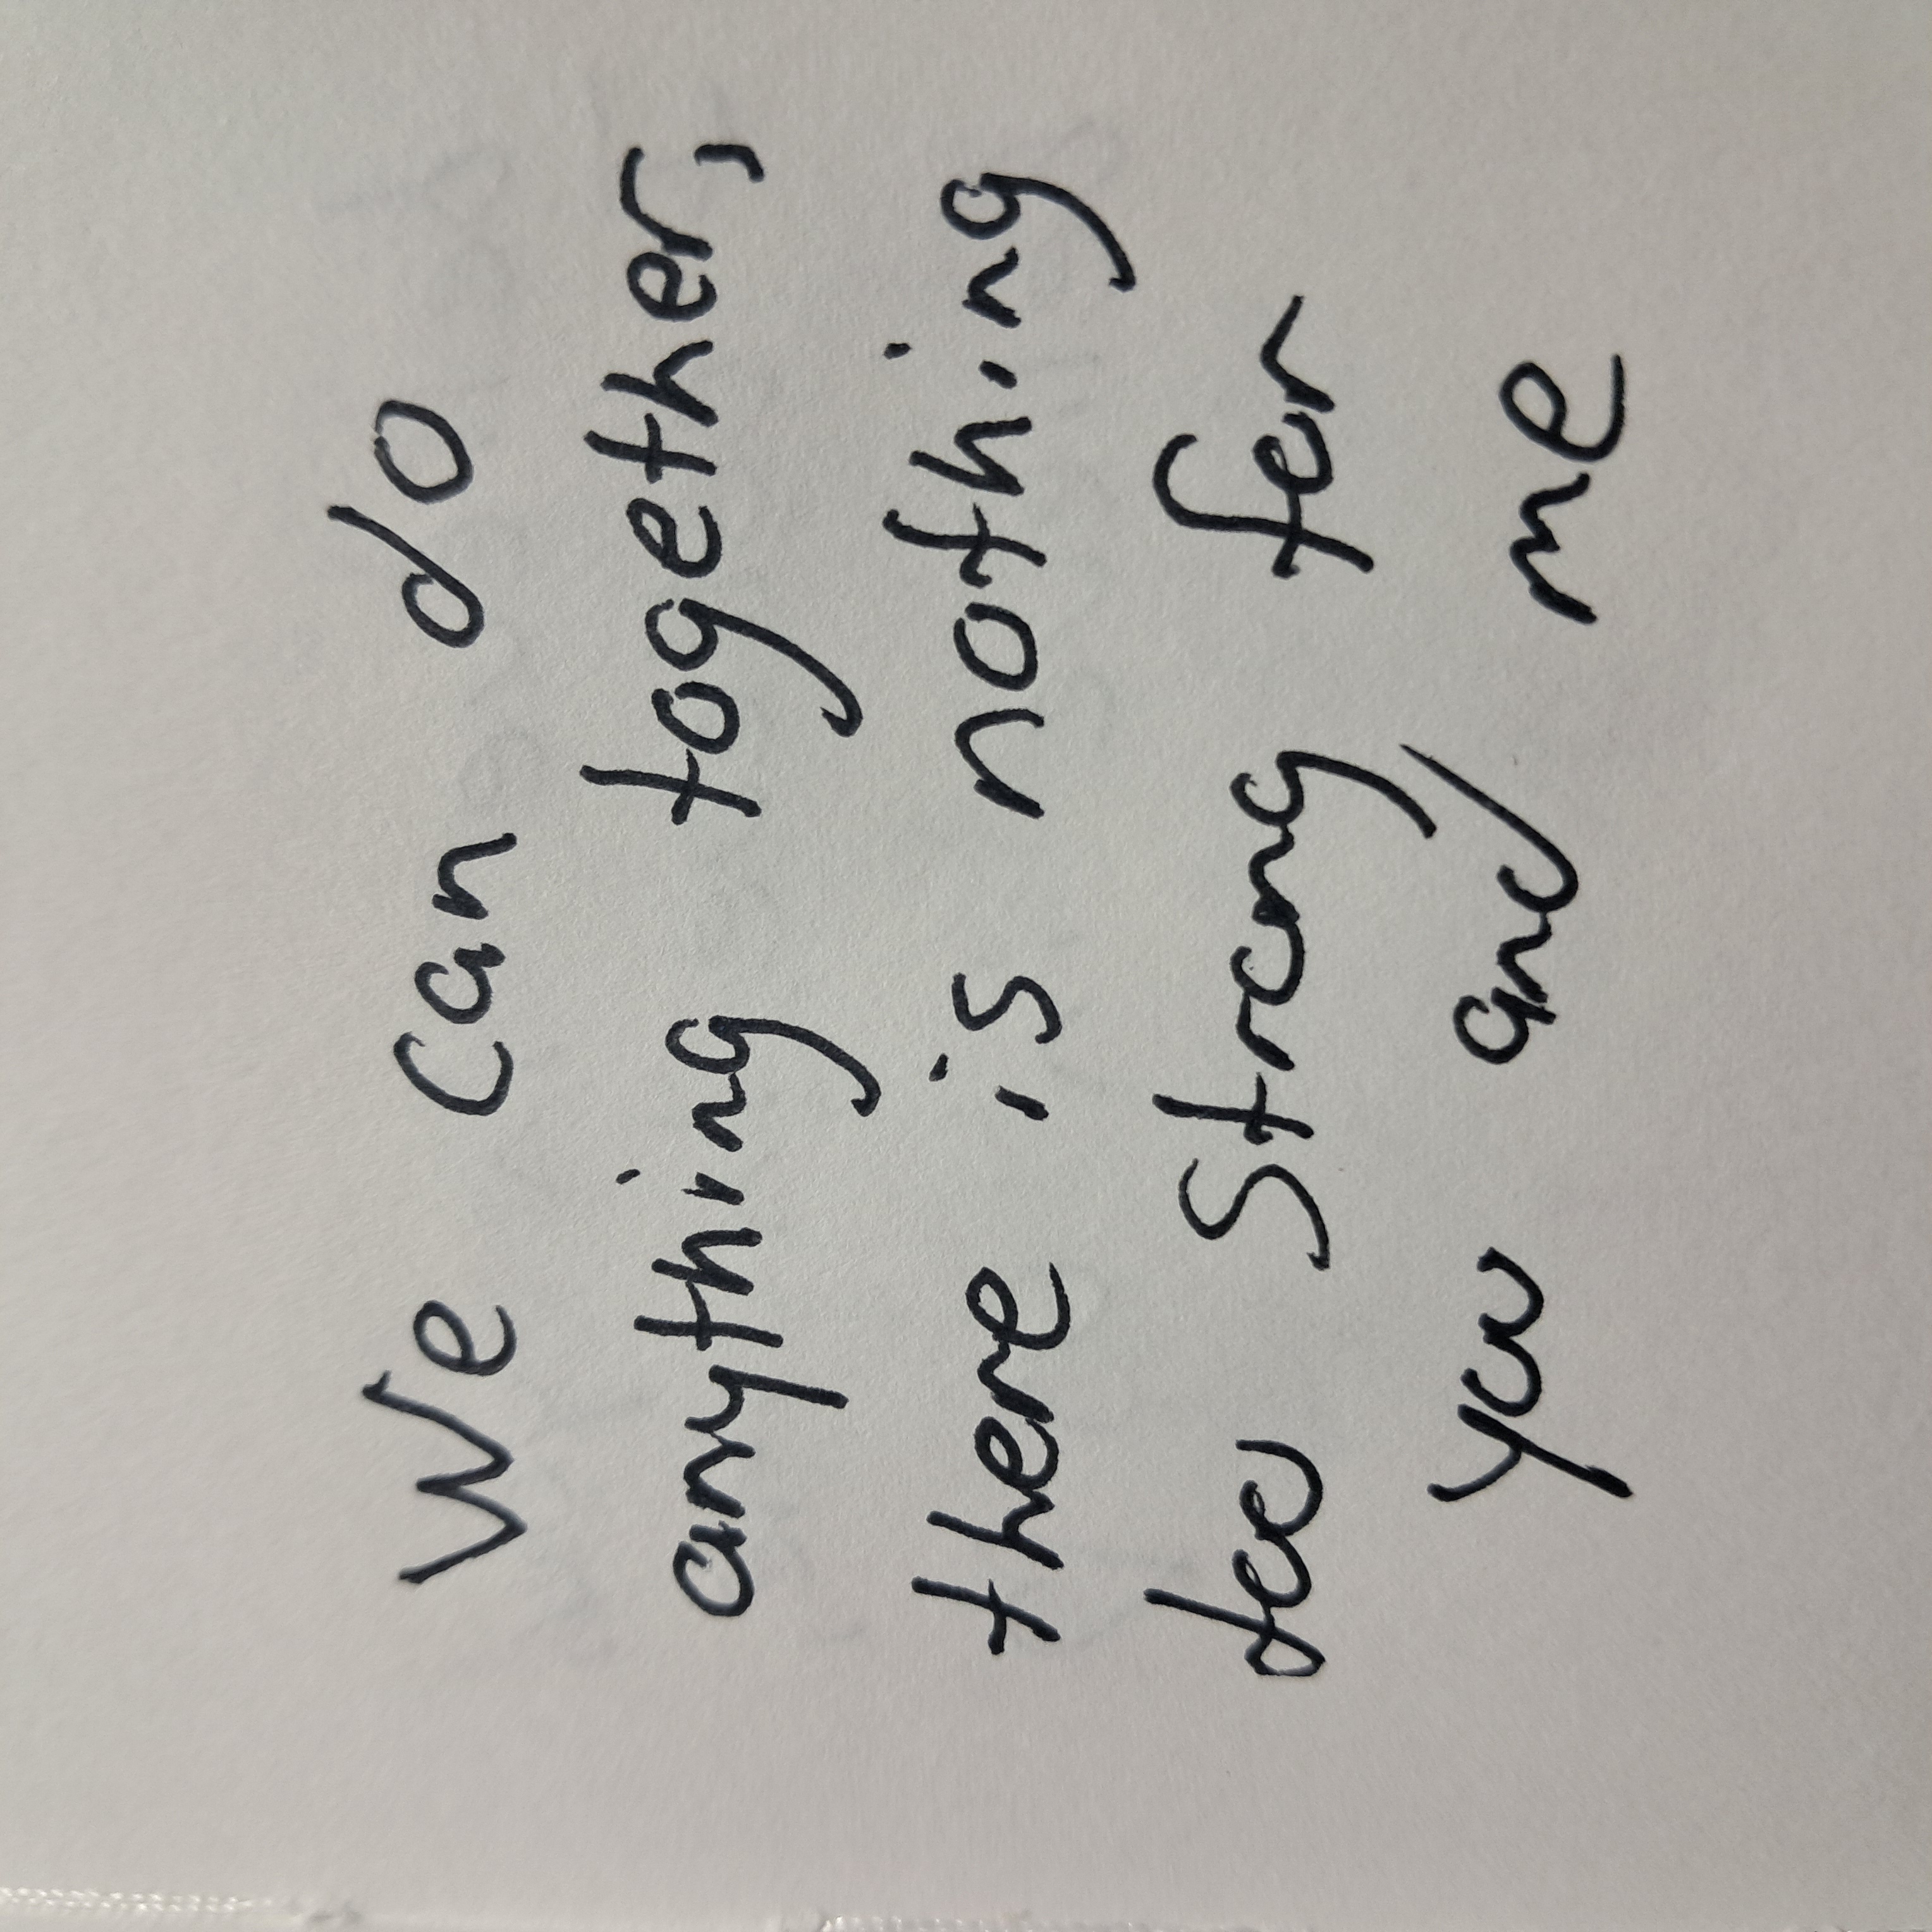 We can do
anything together,
there is nothing
too strong for
you and me